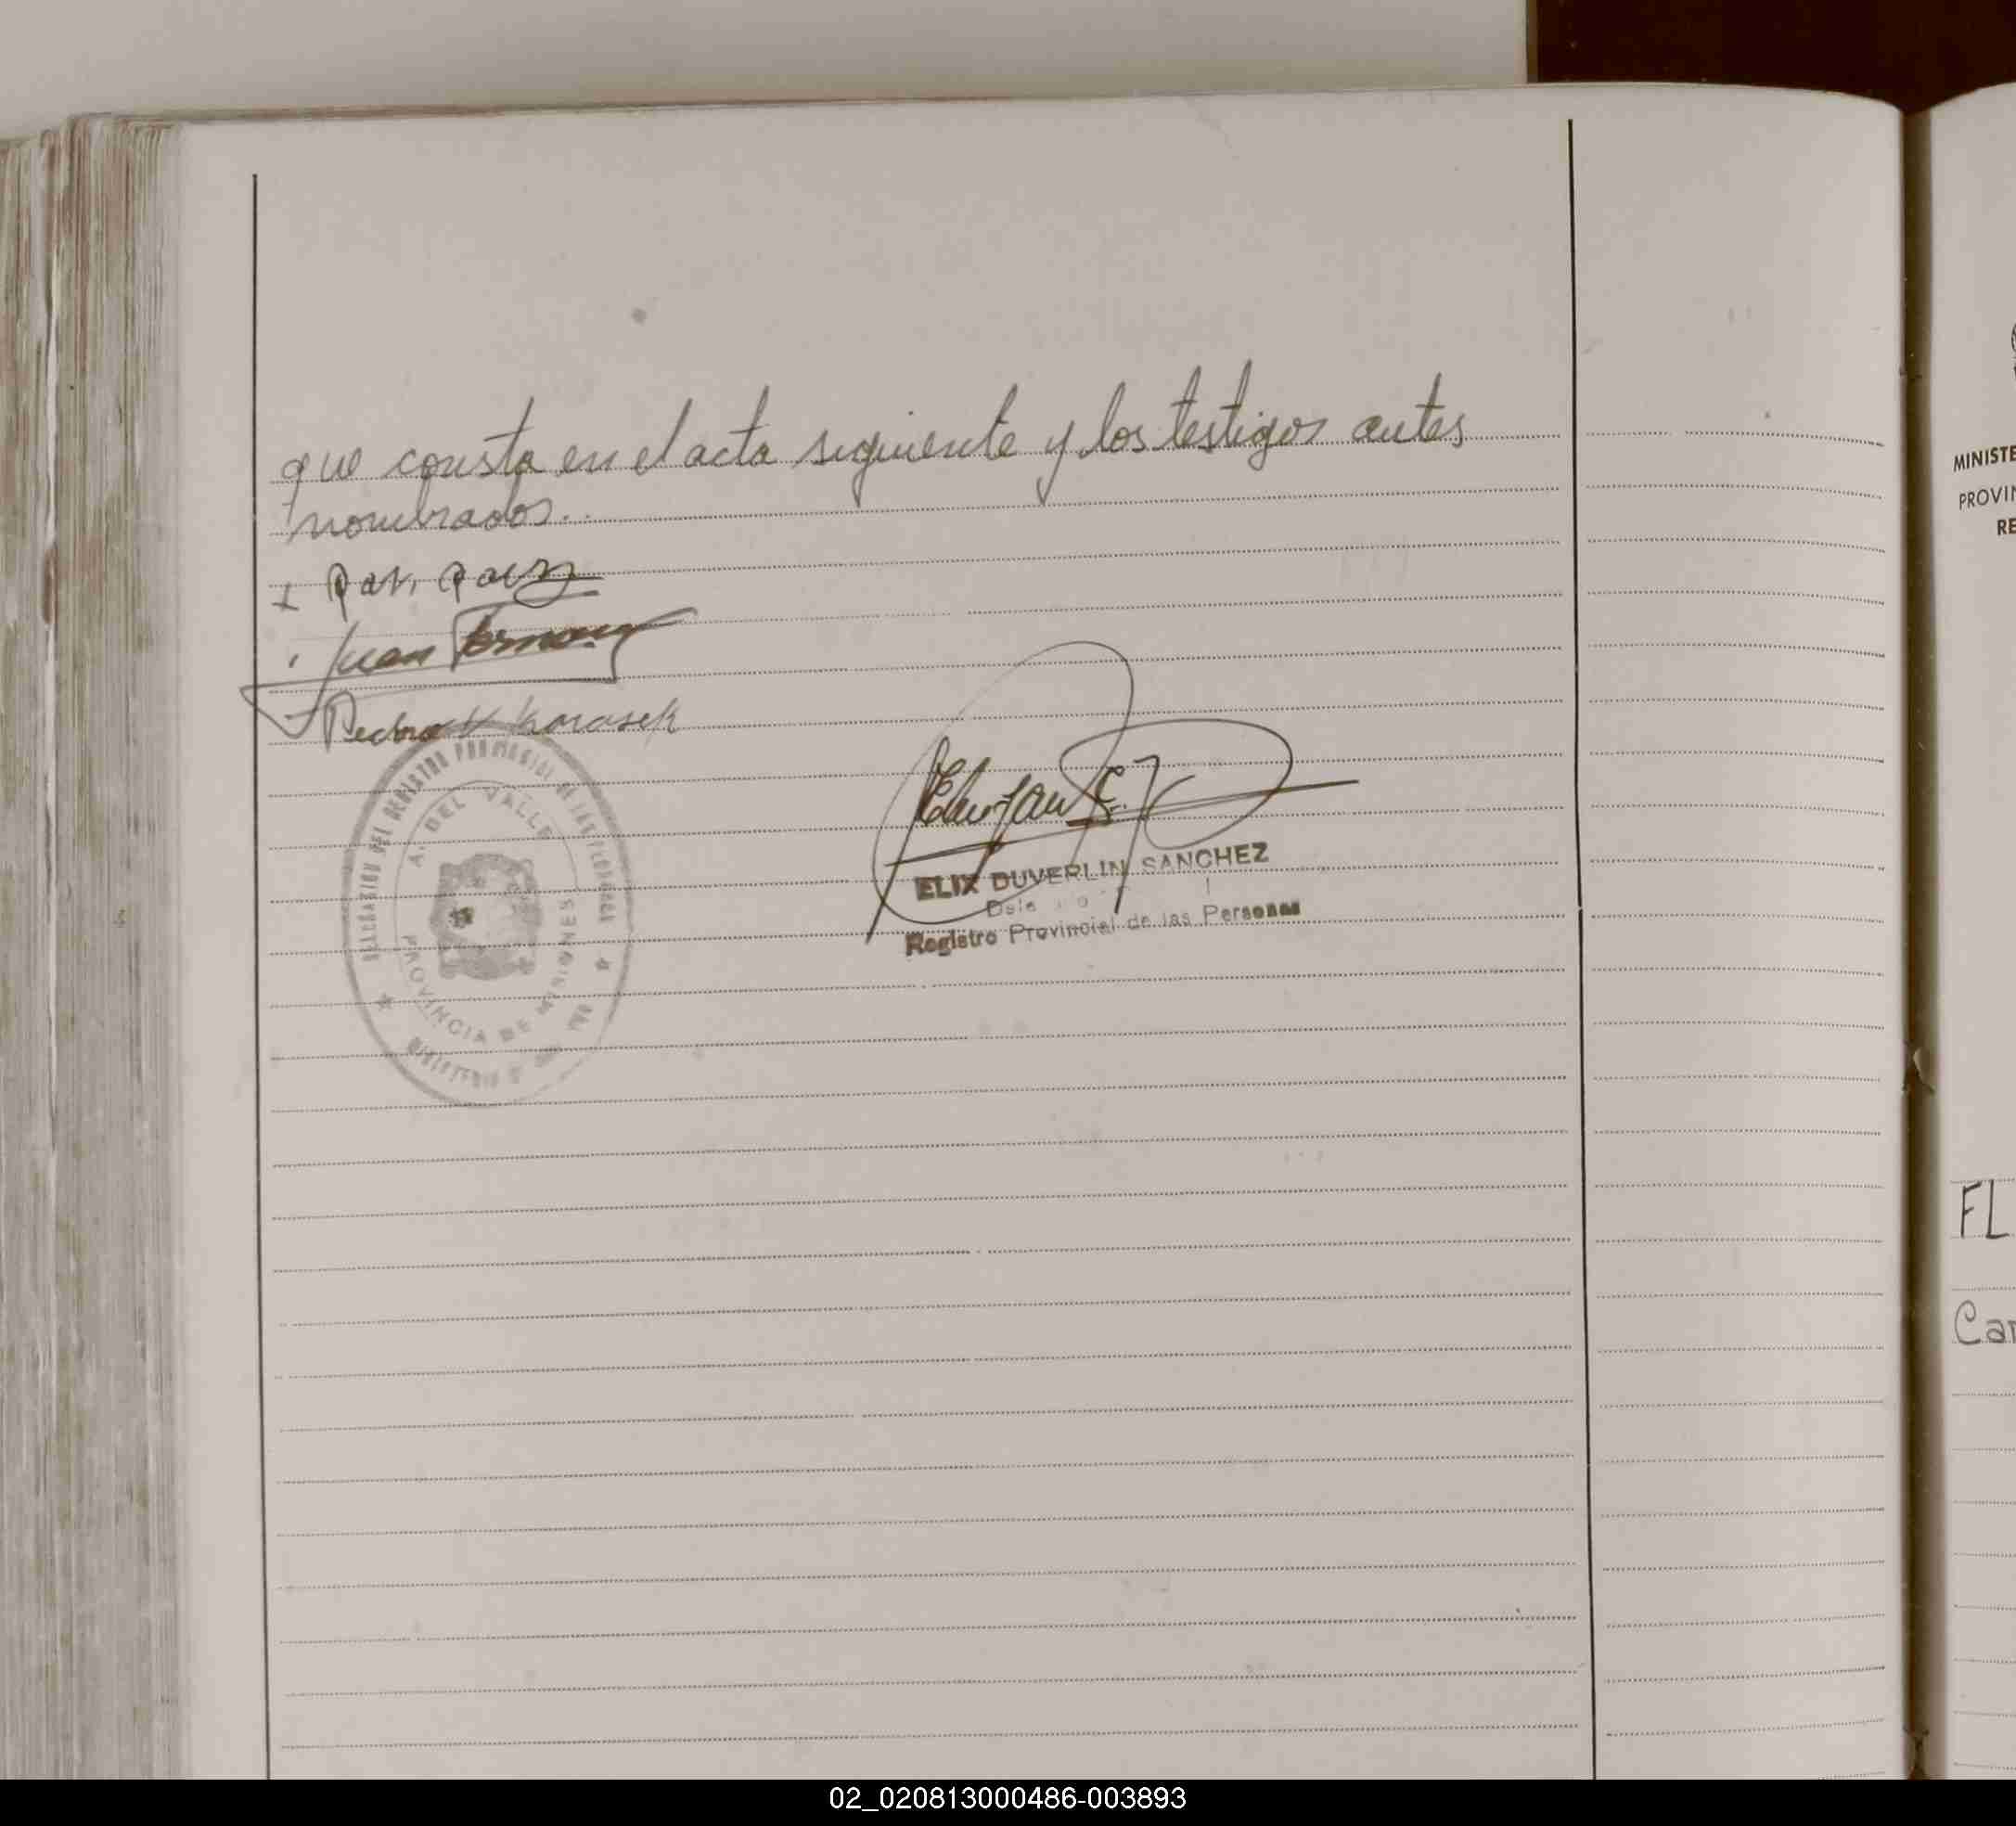 que consta en el acta siguiente y los testigos antes
nombrados..
Juan
Pedro V Karasek
DEL REGISTRO PROVINCIAL DE LAS PERSONAS
A. DEL VALLE
PROVINCIA DE MISIONES
MINISTERIO
ELIX DUVERLIN SANCHEZ
Registro Provincial de las Personas
MINISTE
PROVIN
RE
FL
Car
02_020813000486-003893